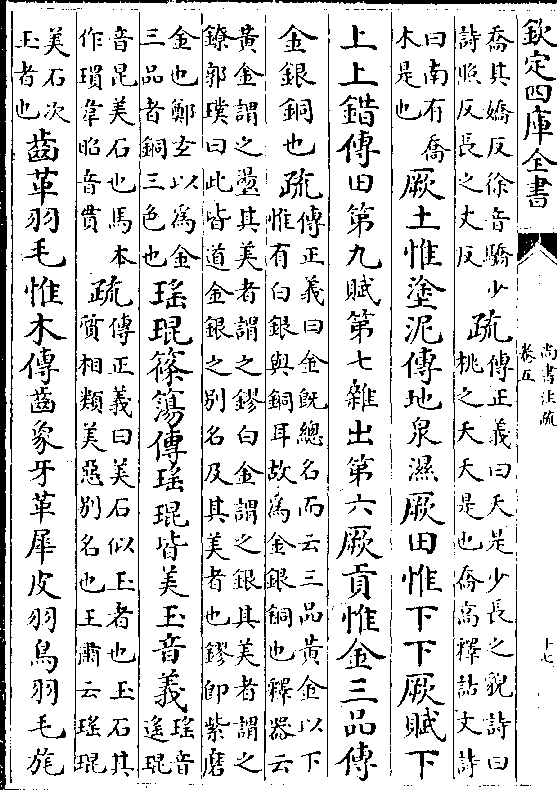 欽定四庫全書
尚書注疏
卷五
十七
喬其嬌反徐音驕少
詩照反長之丈反
疏
傳正義曰夭是少長之貌詩曰
桃之夭夭是也喬高釋詁文詩
曰南有喬
木是也
厥土惟塗泥傳地泉濕厥田惟下下厥賦下
上上錯傳田第九賦第七雜出第六厥貢惟金三品傳
金銀銅也疏
傳正義曰金既總名而云三品黃金以下
惟有白銀與銅耳故為金銀銅也釋器云
黃金謂之璗其美者謂之鏐白金謂之銀其美者謂之
鐐郭璞曰此皆道金銀之別名及其美者也鏐即紫磨
金也鄭玄以為金
三品者銅三色也
瑤琨篠簜傳瑤琨皆美玉音義
瑤音
遙琨
音昆美石也馬本
作瑻韋昭音貫
疏
傳正義曰美石似玉者也玉石其
質相類美惡別名也王肅云瑤琨
美石次
玉者也
齒革羽毛惟木傳齒象牙革犀皮羽鳥羽毛旄